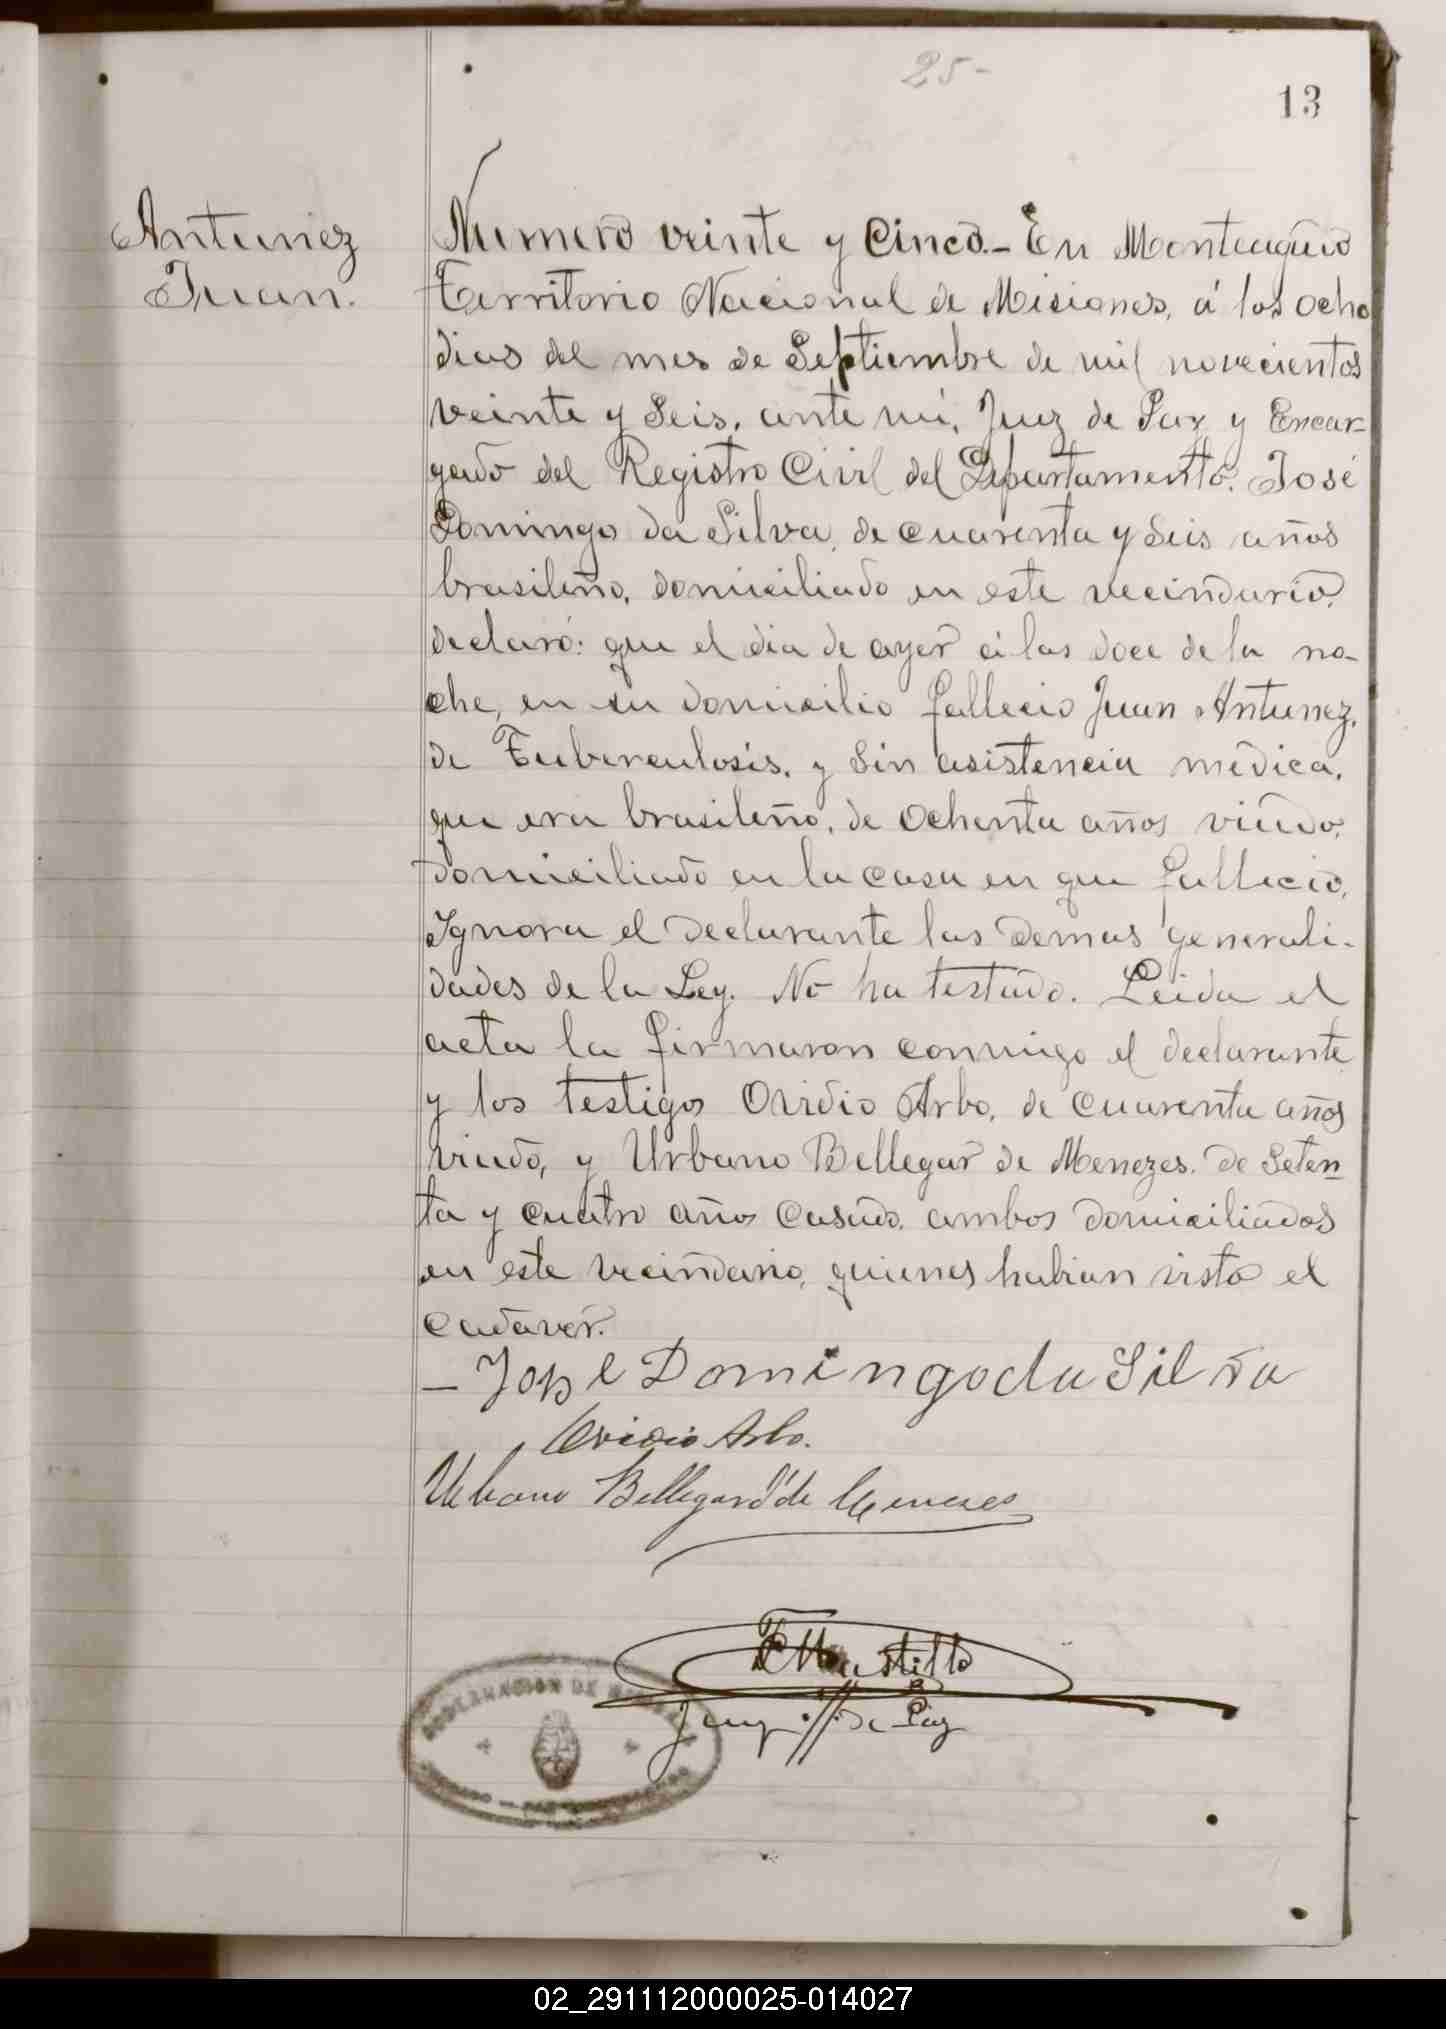 25-
13
Antunez
Juan.
Numero veinte y cinco.- En Monteagudo
Territorio Nacional de Misiones, á los ocho
dias del mes de Septiembre de mil novecientos
veinte y seis, ante mi, Juez de Paz y Encar-
gado del Registro Civil del Departamento. José
Domingo da Silva, de cuarenta y seis años
brasileño, domiciliado en este vecindario,
declaró: que el dia de ayer á las doce de la no-
che, en su domicilio fallecio Juan Antunez,
de Tuberculosis, y sin asistencia médica,
que era brasileño, de ochenta años viudo,
domiciliado en la casa en que fallecio,
Ignora el declarante las demas generali-
dades de la Ley. No ha testado. Leida el
acta la firmaron conmigo el declarante
y los testigos Ovidio Arbo, de cuarenta años
viudo, y Urbano Bellegar de Menezes. de Seten-
ta y cuatro años casado. ambos domiciliados
en este vecindario, quienes habian visto el
cadaver.
- José Domingo da Silva
Ovidio Arbo.
Urbano Bellegard de Menezes
Juez de Paz
GOBERNACION DE
02_291112000025-014027